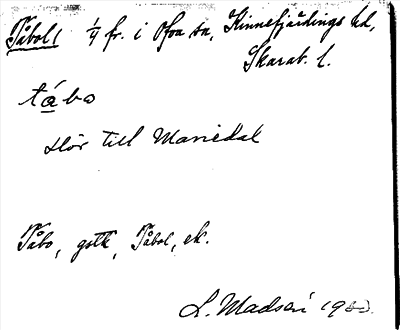 Tåbol, ¼ fr. i Ova sn, Kinnefjärdings hd,
Skarab. l.
tábo
Hör till Mariedal
Tåbo, gstk, Tåbol, ek.
L. Madsén